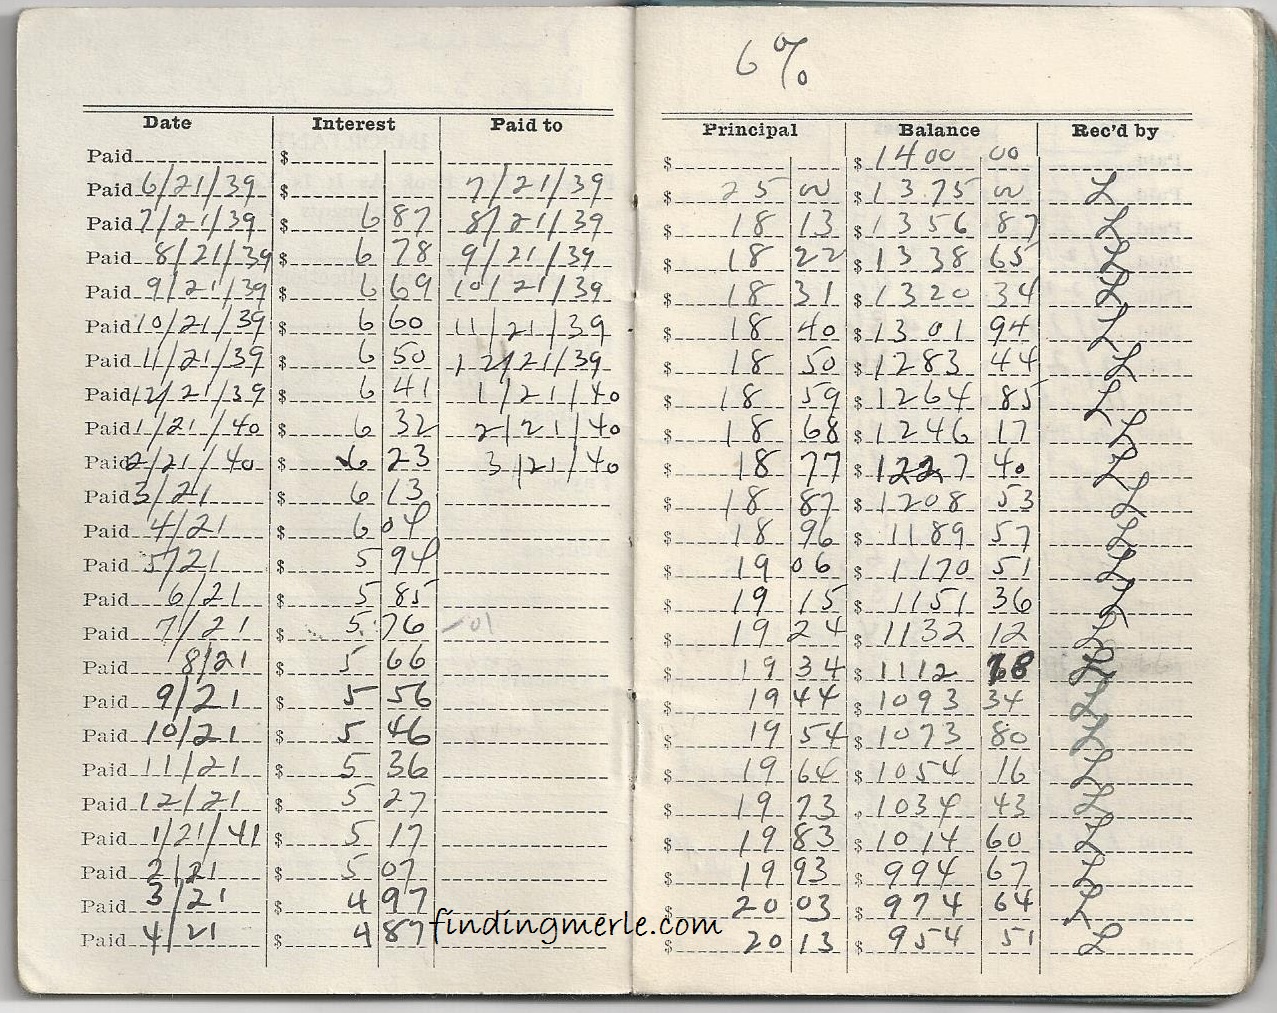 6%
Date Interest Paid to Principal Balance Rec'd by
Paid $ $ $ 1400 00
Paid 6/21/39 $ 7/21/39 $ 25 00 $ 1375 00 L
Paid 7/21/39 $ 6 87 8/21/39 $ 18 13 $ 1356 87 L
Paid 8/21/39 $ 6 78 9/21/39 $ 18 22 $ 1338 65 L
Paid 9/21/39 $ 6 69 10/21/39 $ 18 31 $ 1320 34 L
Paid 10/21/39 $ 6 60 11/21/39 $ 18 40 $ 1301 94 L
Paid 11/21/39 $ 6 50 12/21/39 $ 18 50 $ 1283 44 L
Paid 12/21/39 $ 6 41 1/21/40 $ 18 59 $ 1264 85 L
Paid 1/21/40 $ 6 32 2/21/40 $ 18 68 $ 1246 17 L
Paid 2/21/40 $ 6 23 3/21/40 $ 18 77 $ 1227 40 L
Paid 3/21 $ 6 13 $ 18 87 $ 1208 53 L
Paid 4/21 $ 6 04 $ 18 96 $ 1189 57 L
Paid 5/21 $ 5 94 $ 19 06 $ 1170 51 L
Paid 6/21 $ 5 85 $ 19 15 $ 1151 36 L
Paid 7/21 $ 5 76 $ 19 24 $ 1132 12 L
Paid 8/21 $ 5 66 $ 19 34 $ 1112 78 L
Paid 9/21 $ 5 56 $ 19 44 $ 1093 34 L
Paid 10/21 $ 5 46 $ 19 54 $ 1073 80 L
Paid 11/21 $ 5 36 $ 19 64 $ 1054 16 L
Paid 12/21 $ 5 27 $ 19 73 $ 1034 43 L
Paid 1/21/41 $ 5 17 $ 19 83 $ 1014 60 L
Paid 2/21 $ 5 07 $ 19 93 $ 994 67 L
Paid 3/21 $ 4 97 $ 20 03 $ 974 64 L
Paid 4/21 $ 4 87 $ 20 13 $ 954 51 L
findingmerle.com